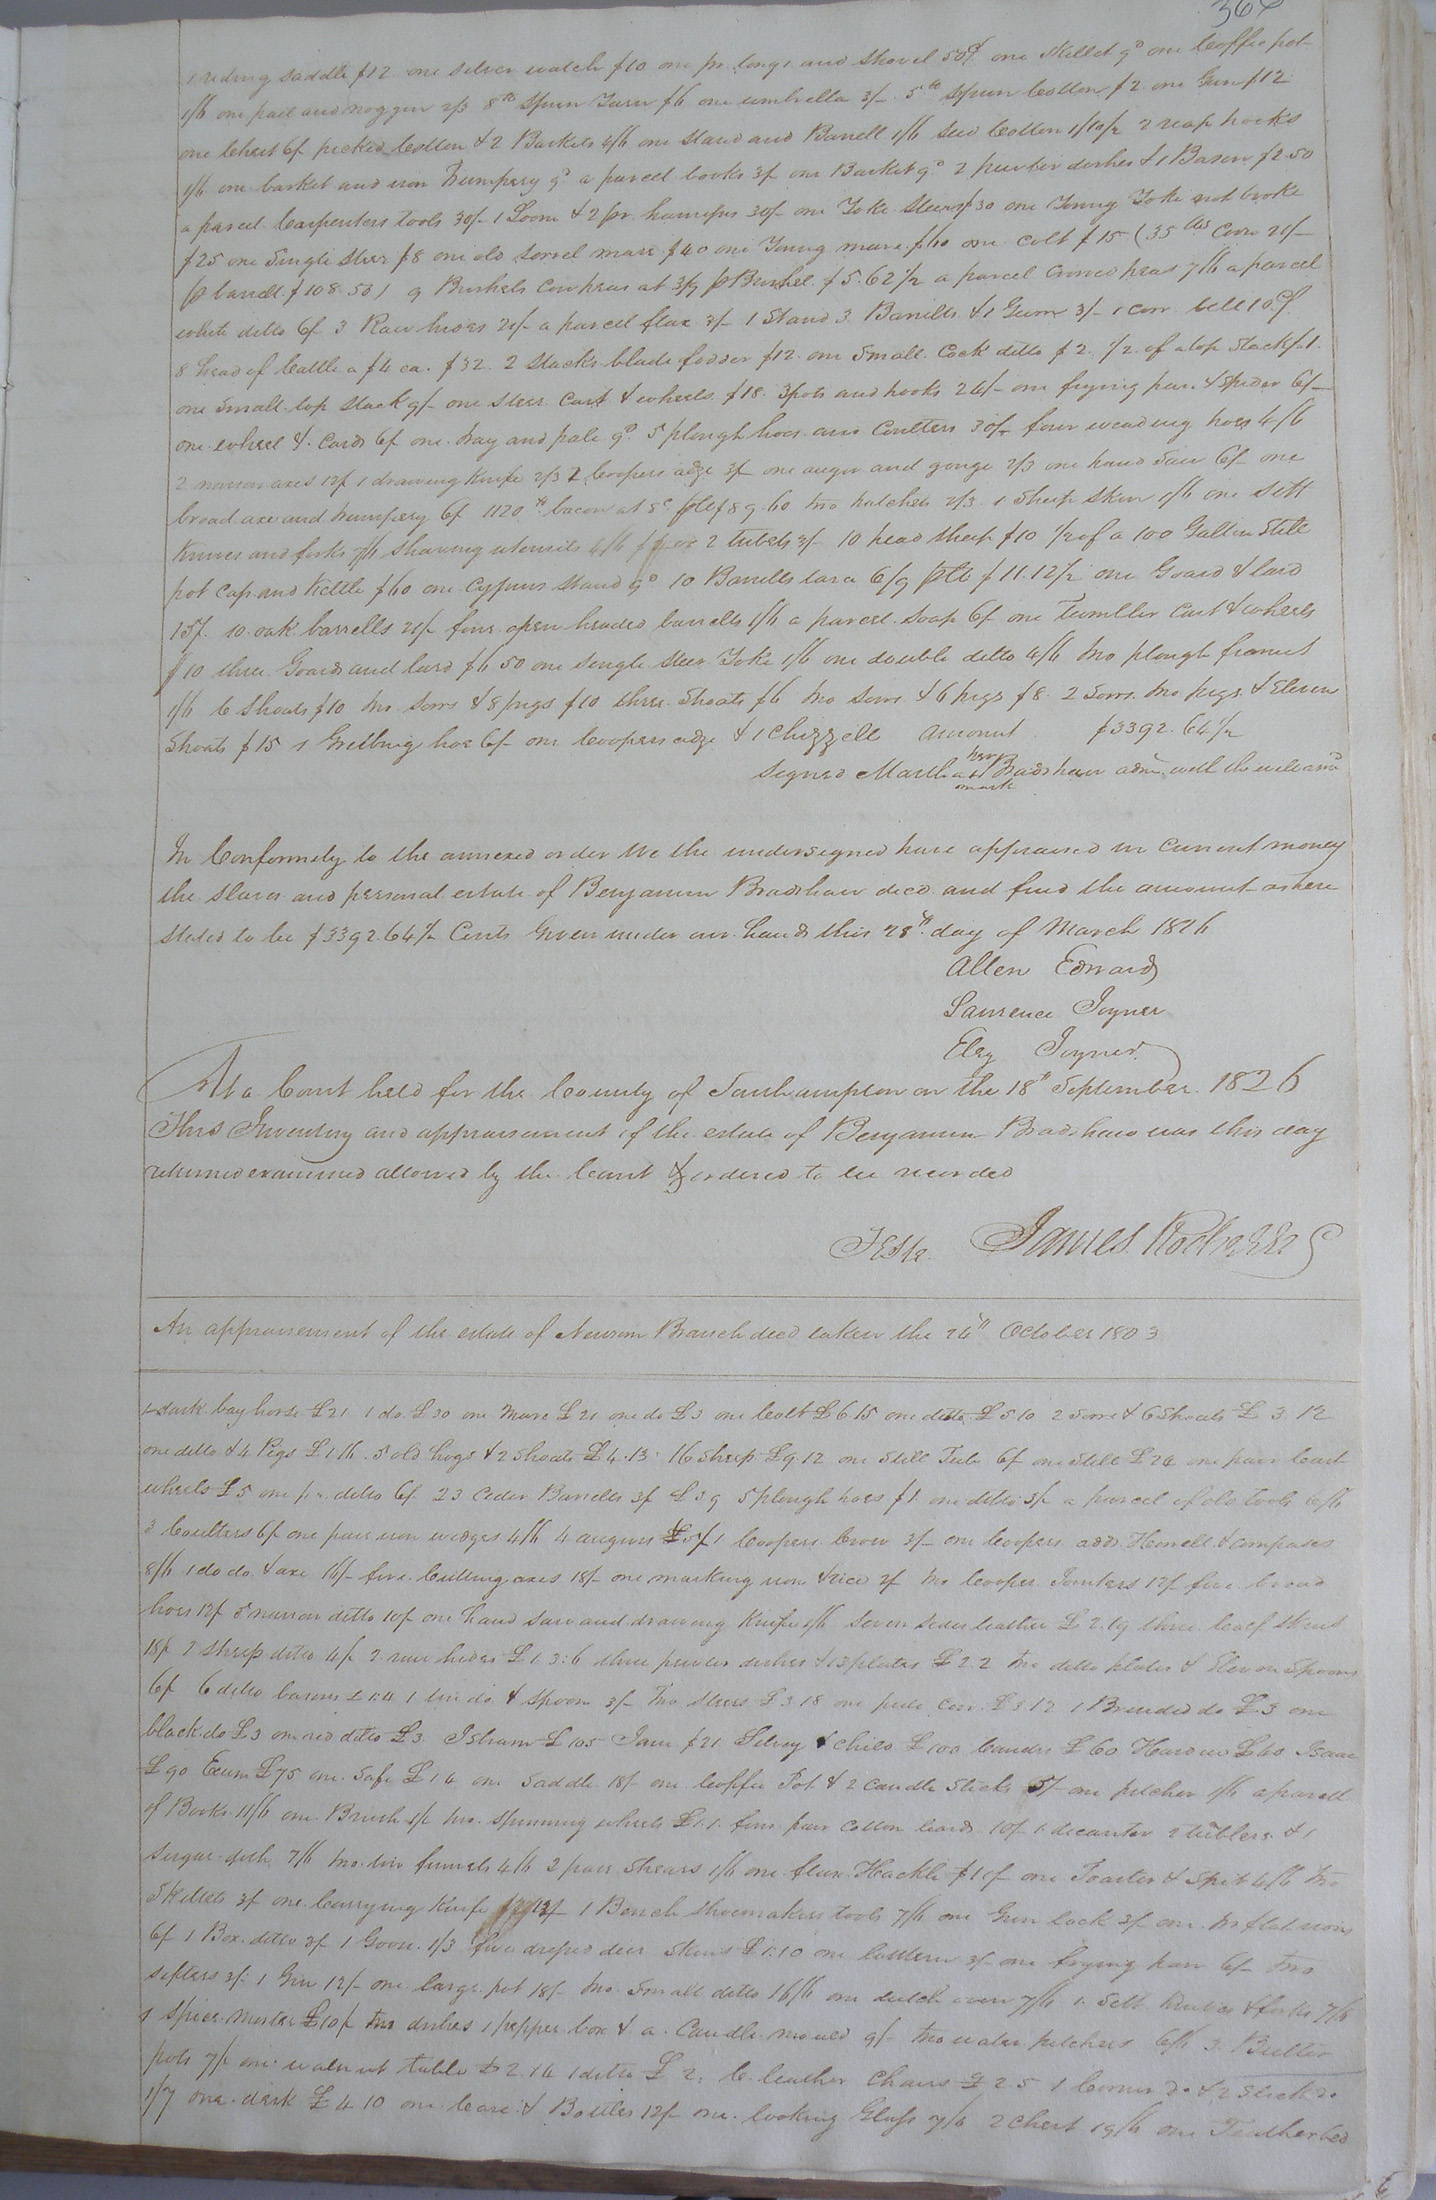 364
1 riding saddle $12 one silver watch $10 one pr tongs and shovel 50¢ one skillet 9d one Coffee pot
1/6 one pail and noggin 2/3 8 lb spun Yarn $6 one umbrella 3/- 5 lb spun Cotton $2 one Gun $12
one Chest 6/ picked Cotton & 2 Baskets 4/6 one stand and Barrell 1/6 seed Cotton 1/10½ 2 reap hooks
1/6 one basket and iron Trumpery 9d a parcel books 3/ one Basket 9d 2 pewter dishes & 1 Bason $2.50
a parcel Carpenters tools 30/- 1 Loom & 2 pr. harness 30/- one Yoke Steers $30 one Young Yoke not broke
$25 one Single steer $8 one old sorrel mare $40 one Young mare $60 one Colt $15 (35 bls Corn 21/-
p barrell $108.50) 9 Bushels Cow peas at 3/9 p Bushel $5.62½ a parcel peas 7/6 a parcel
white ditto 6/ 3 Raw hides 21/- a parcel flax 3/- 1 Stand 3 Barrells & 1 Gum 3/- 1 cow bell 10 Cts.
8 head of Cattle a $4 ea. $32 2 stacks blade fodder $12 one Small Cock ditto $2 ½ of a top Stack $1.
one small top stack 9/- one steer Cart & wheels $18 3 pots and hooks 24/- one frying pan & spider 6/-
one wheel & Cards 6/ one tray and pale 9d 5 plough hoes and Coulters 30/- four weading hoes 4/6
2 narrow axes 12/ 1 drawing Knife 2/3 2 Coopers adze 3/ one auger and gouge 2/3 one hand Saw 6/- one
broad axe and trumpery 6/ 1120 lb bacon at 8c plb $89.60 two hatchels 2/3 1 Sheep skin 1/6 one sett
Knives and forks 7/6 shaving utensils 4/6 2 tubs 3/- 10 head sheep $10 ½ of a 100 Gallon Still
pot cap and Kettle $60 one Cyprus stand 9d 10 Barrells tar a 6/9 plb $11.12½ one Goard & lard
15/. 10 oak barrells 21/- four open headed barrells 1/6 a parcel soap 6/ one Tumbler Cart & wheels
$10 three Goards and lard $6 50 one single steer Yoke 1/6 one double ditto 4/6 two plough frames
1/6 6 Shoats $10 two sows & 8 pigs $10 three Shoats $6 two sows & 6 pigs $8 2 Sows two pigs & Eleven
Shoats $15 1 Grubing hoe 6/- one Coopers adze & 1 Chizzell amount $3392.64½
her
Signed Martha + Bradshaw adm. with the will annd
mark
In Conformity to the annexed order We the undersigned have appraised in Current money
the slaves and personal estate of Benjamin Bradshaw decd and find the amount as here
stated to be $3392.64½ Cents Given under our hands this 28th day of March 1826
Allen Edwards
Laurence Joyner
Eley Joyner
At a Court held for the County of Southampton on the 18th September 1826
This Inventory and appraisement of the estate of Benjamin Bradshaw was this day
returned examined allowed by the Court & ordered to be recorded
Teste James Rochelle C
An appraisement of the estate of Newsom Branch decd taken the 24th October 1803
1 dark bay horse £21 1 do £30 one Mare £21 one do £3 one Colt £6 15 one ditto £5 10 2 Sows & 6 Shoats £3 12
one ditto & 4 Pigs £1 16 5 old hogs & 2 Shoats £4.13 16 Sheep £9.12 one Still Tub 6/ one Still £24 one pair Cart
wheels £5 one pr. ditto 6/ 23 Ceder Barrells 3/ £3 9 5 plough hoes £1 one ditto 3/- a parcel of old tools 6/6
3 Coulters 6/ one pair iron wedges 4/6 4 augers 1 Coopers Crow 3/- one Coopers adds Howell & compases
8/6 1 do do & axe 16/- five Cutting axes 18/- one marking iron & vice 3/ two Cooper Jointers 12/ five broad
hoes 12/ 5 narrow ditto 10/ one hand saw and drawing Knife Seven sides leather £2.19 three Calf skins
18/ 2 sheep ditto 4/ 2 raw hides £1.3:6 three pewter dishes & plates £2.2 two ditto plates & Eleven Spoons
6/ 6 ditto basons £1:4 1 tin do & spoon 3/ two steers £3 18 one pide Cow £3.12 1 Brended do £3 one
black do £3 one red ditto £3 Isham £105 Jane £21 Silvey & Child £100 £60 £40 Isaac
£90 Exum £75 one Safe £1 4 one Saddle 18/- one Coffee Pot & 2 Candle Sticks 5/- one pitcher 1/6 a parcell
of Books 11/6 one Brush 1/- two spinning wheels £1.1 four pair Cotton Cards 10/ 1 decanter 2 tublers & 1
Sugar dish 7/6 two tin funnels 4/6 2 pair Shears 1/6 one flax Hackle one Toaster & Spit 4/6 two
Skillets 3/ one Currying Knife 1 Bench Shoemakers tools 7/6 one Gun lock 3/ one two flat irons
6/ 1 Box ditto 3/ 1 Goose 1/3 five dressed deer Skins £1:10 one lantern 3/ one frying pan 6/- two
sifters 3/: 1 Gun 12/- one large pot 18/- two Small ditto 16/6 one dutch oven 7/6 1 Sett Knives & forks 7/6
1 Spice Morter £10/ two dishes 1 pepper box & a Candle mould 9/- two water pitchers 6/6 3 Butter
pots 7/- one walnut table £2.14 1 ditto £2. 6 leather Chairs £2 5 1 Corner Do & 2 Do
1/7 one desk £4 10 one Case & Bottles 12/- one looking Glass 7/6 2 Chest 19/6 one Featherbed